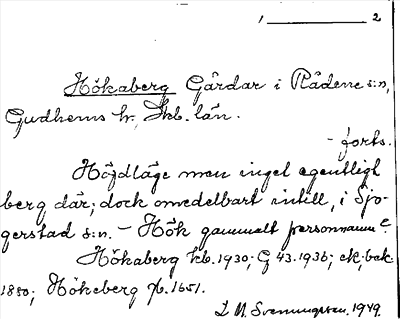 1 2
Hökaberg Gårdar i Rådene s:n,
Gudhems hr, Skb. län.
- forts.
Höjdläge men inget egentligt
berg där; dock omedelbart intill, i Sjo-
gerstad s:n. - Hök gammalt personnamn
Hökaberg kb. 1930; G 43. 1936; ek. bok
1880; Hökeberg jb. 1651.
1949.